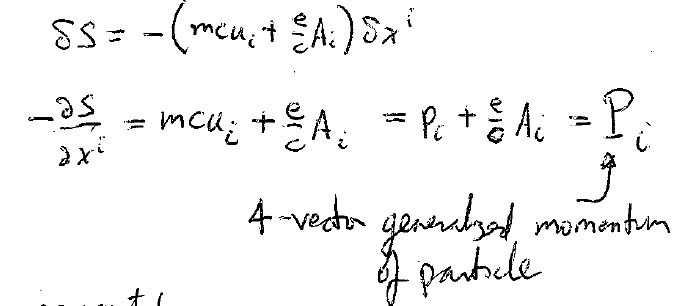 δS = -(mcu_i + e/c A_i) δx^i
-∂S/∂x^i = mcu_i + e/c A_i = p_i + e/c A_i = P_i
4-vector generalized momentum
of particle